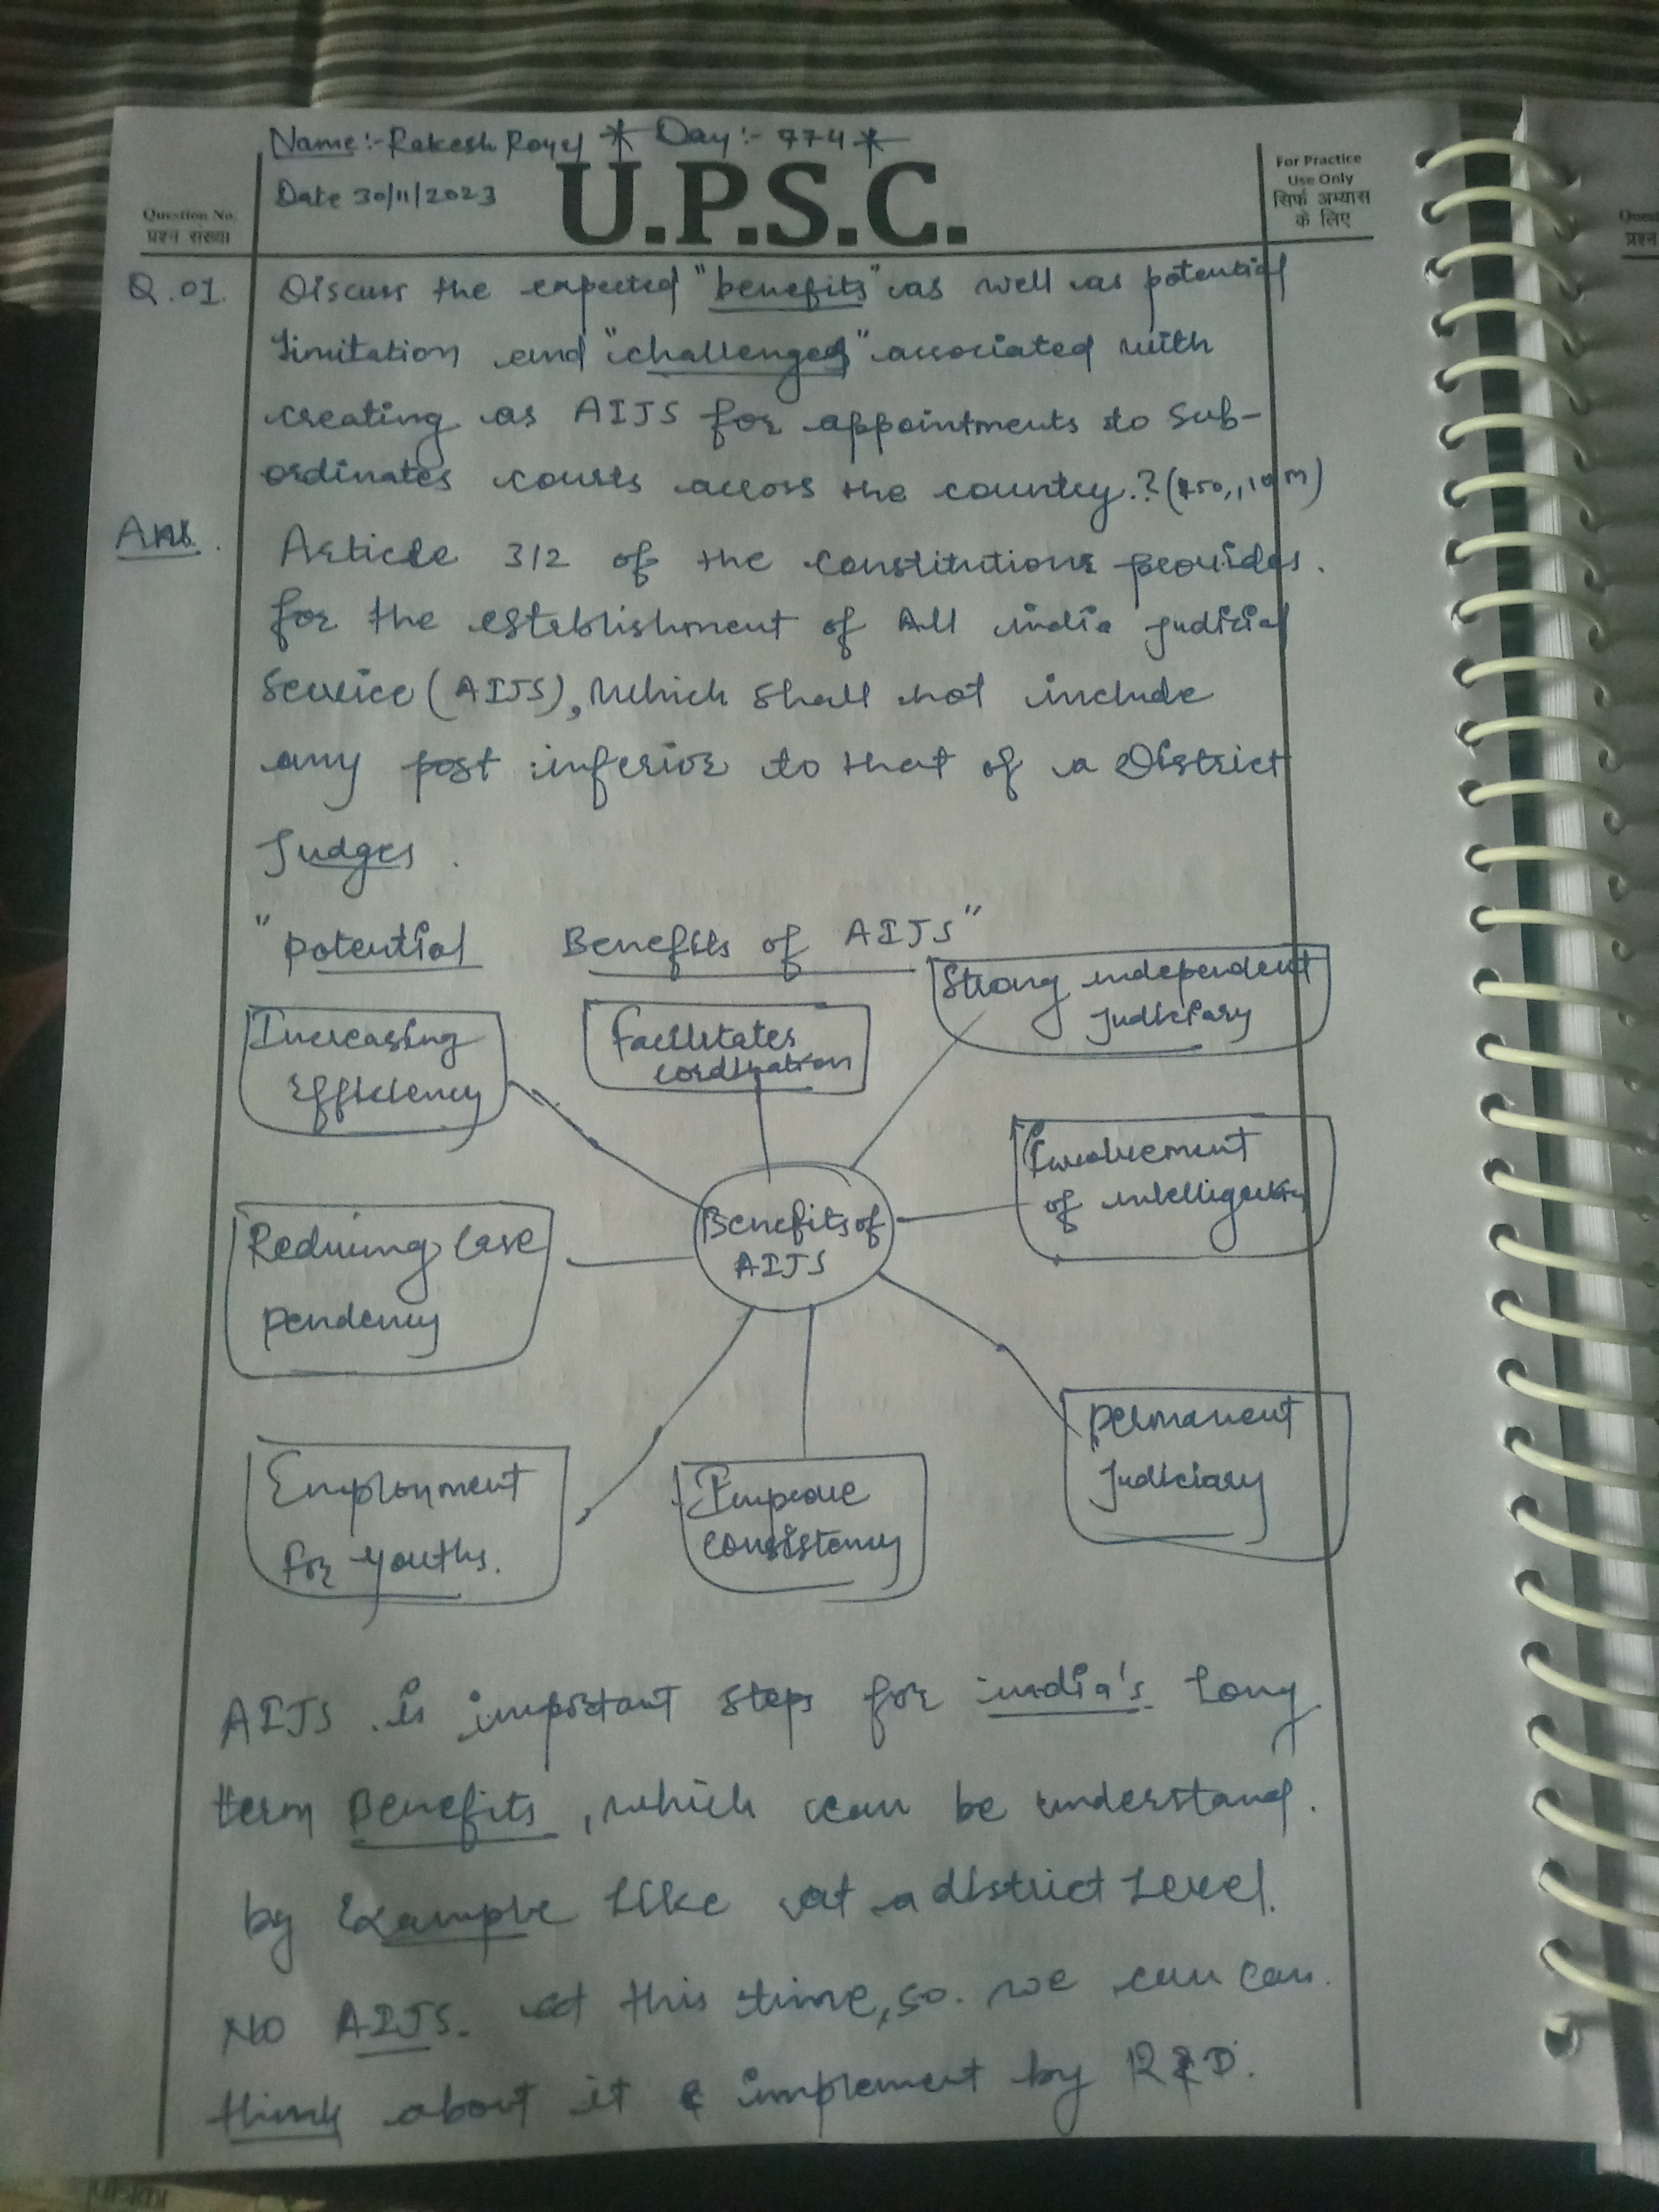 Name:- Rakesh Royel * Day:- 774 *
Date 30/11/2023
U.P.S.C.
For Practice
Use Only
सिर्फ अभ्यास
के लिए
Question No.
प्रश्न संख्या
Q.01. Discuss the expected "benefits" as well as potential
limitation and "challenges" associated with
creating as AIJS for appointments to Sub-
ordinates courts across the country.? (
Ans. Article 312 of the constitutions provides.
for the establishment of All india judicial
Service (AIJS), which shall not include
any post inferior to that of a District
Judges.
"potential Benefits of AIJS"
Strong independent
judiciary
Increasing
Efficiency
Facilitates
cordination
Involvement
of
Benefits of
AIJS
Reducing case
pendency
Permanent
judiciary
Employment
for youths.
Improve
consistency
AIJS is important steps for india's Long
term Benefits, which can be understand.
by Example Like at a district Level.
NO AIJS. at this time, so. we can can.
think about it & implement by R&D.